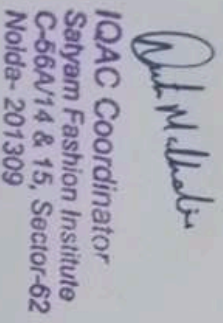 IQAC Coordinator
Satyam Fashion Institute
C-56A/14 & 15, Sector-62
Noida- 201309